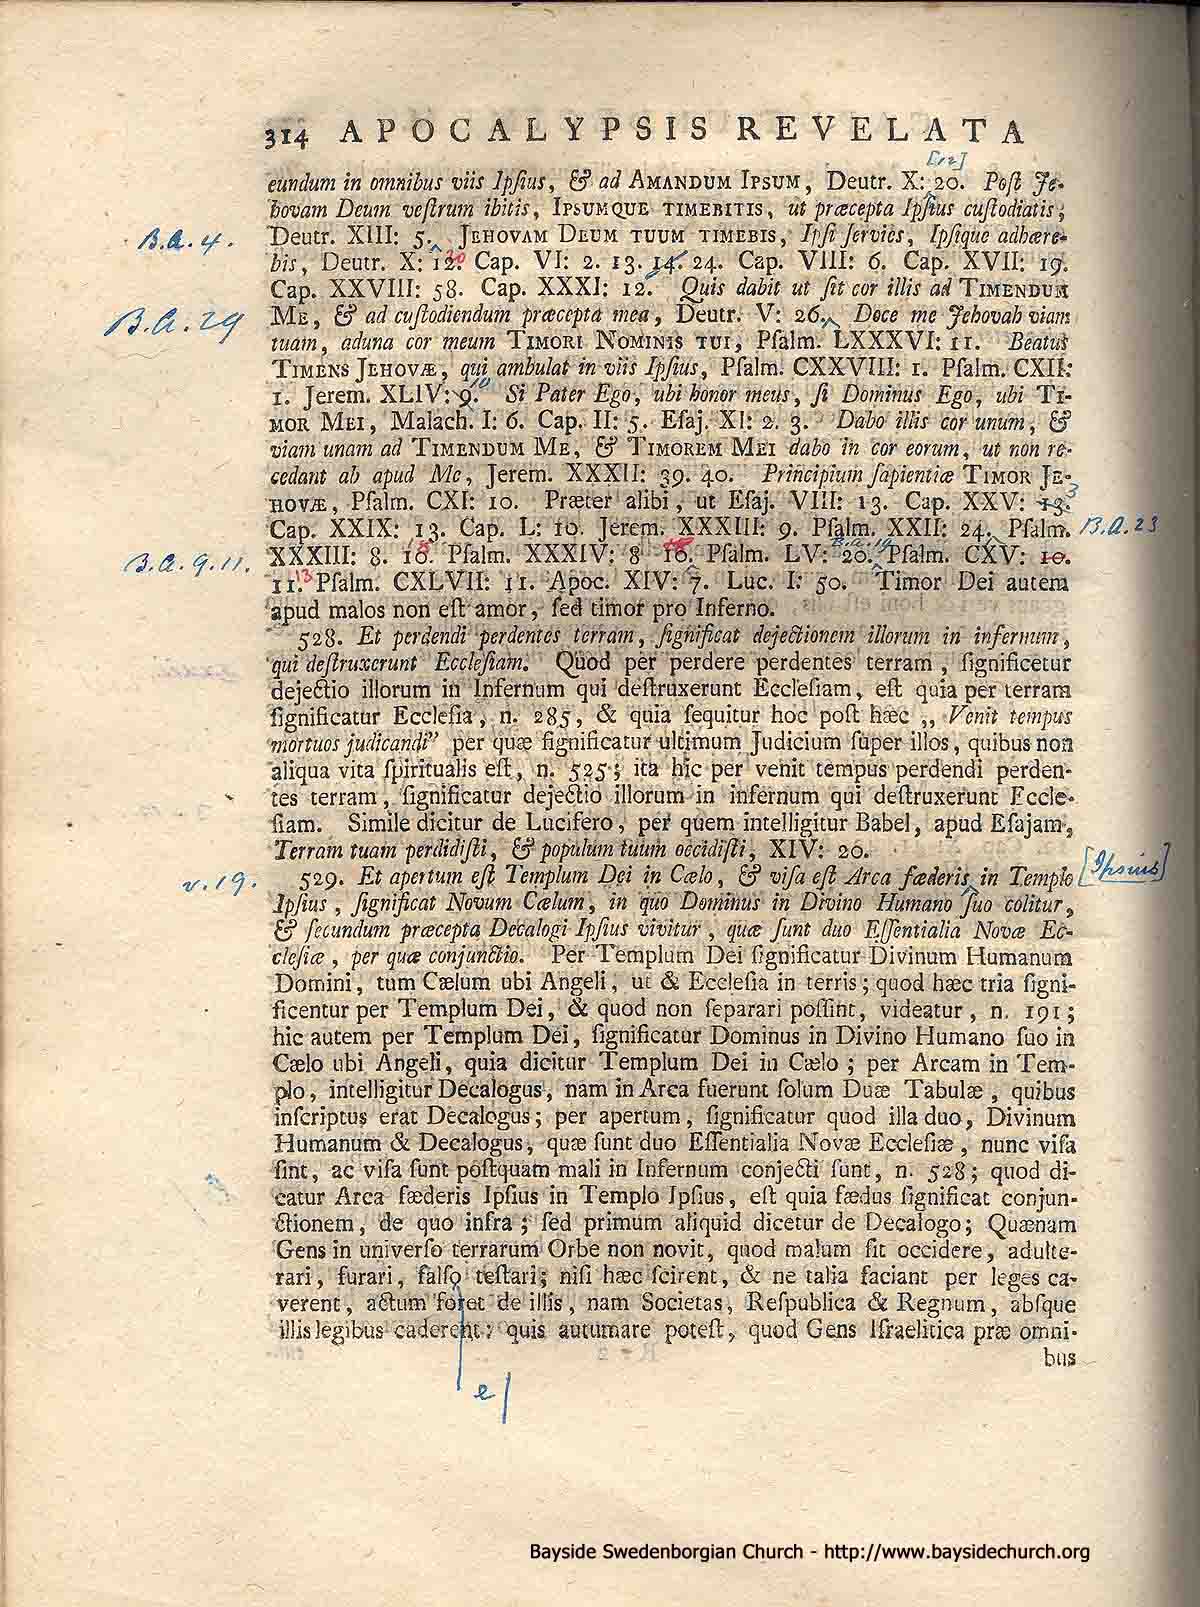 314 APOCALYPSIS REVELATA
[12]
eundum in omnibus viis Ipſius, & ad AMANDUM IPSUM, Deutr. X: 20. Poſt Je-
hovam Deum veſtrum ibitis, IPSUMQUE TIMEBITIS, ut præcepta Ipſius cuſtodiatis;
B.a. 4. Deutr. XIII: 5. JEHOVAM DEUM TUUM TIMEBIS, Ipſi ſervies, Ipſique adhære-
bis, Deutr. X: 12. 20 Cap. VI: 2. 13. 14. 24. Cap. VIII: 6. Cap. XVII: 19.
Cap. XXVIII: 58. Cap. XXXI: 12. Quis dabit ut ſit cor illis ad TIMENDUM
B.a. 29 ME, & ad cuſtodiendum præcepta mea, Deutr. V: 26. Doce me Jehovah viam
tuam, aduna cor meum TIMORI NOMINIS TUI, Pſalm. LXXXVI: 11. Beatus
TIMENS JEHOVÆ, qui ambulat in viis Ipſius, Pſalm. CXXVIII: 1. Pſalm. CXII:
1. Jerem. XLIV: 9. 10 Si Pater Ego, ubi honor meus, ſi Dominus Ego, ubi TI-
MOR MEI, Malach. I: 6. Cap. II: 5. Eſaj. XI: 2. 3. Dabo illis cor unum, &
viam unam ad TIMENDUM ME, & TIMOREM MEI dabo in cor eorum, ut non re-
cedant ab apud Me, Jerem. XXXII: 39. 40. Principium ſapientiæ TIMOR JE-
HOVÆ, Pſalm. CXI: 10. Præter alibi, ut Eſaj. VIII: 13. Cap. XXV: 13. 3
Cap. XXIX: 13. Cap. L: 10. Jerem. XXXIII: 9. Pſalm. XXII: 24. Pſalm. B.a. 23
B.a. 9.11. XXXIII: 8. 18. Pſalm. XXXIV: 8 10. Pſalm. LV: 20. Pſalm. CXV: 10.
11. 13 Pſalm. CXLVII: 11. Apoc. XIV: 7. Luc. I: 50. Timor Dei autem
apud malos non eſt amor, ſed timor pro Inferno.
528. Et perdendi perdentes terram, ſignificat dejectionem illorum in infernum,
qui deſtruxerunt Eccleſiam. Quod per perdere perdentes terram, ſignificetur
dejectio illorum in Infernum qui deſtruxerunt Eccleſiam, eſt quia per terram
ſignificatur Eccleſia, n. 285, & quia ſequitur hoc poſt hæc ,, Venit tempus
mortuos judicandi” per quæ ſignificatur ultimum Judicium ſuper illos, quibus non
aliqua vita ſpiritualis eſt, n. 525; ita hic per venit tempus perdendi perden-
tes terram, ſignificatur dejectio illorum in infernum qui deſtruxerunt Eccle-
ſiam. Simile dicitur de Lucifero, per quem intelligitur Babel, apud Eſajam,
Terram tuam perdidiſti, & populum tuum occidiſti, XIV: 20.
v. 19. 529. Et apertum eſt Templum Dei in Cælo, & viſa eſt Arca fæderis in Templo [Ipsius]
Ipſius, ſignificat Novum Cælum, in quo Dominus in Divino Humano ſuo colitur,
& ſecundum præcepta Decalogi Ipſius vivitur, quæ ſunt duo Eſſentialia Novæ Ec-
cleſiæ, per quæ conjunctio. Per Templum Dei ſignificatur Divinum Humanum
Domini, tum Cælum ubi Angeli, ut & Eccleſia in terris; quod hæc tria ſigni-
ficentur per Templum Dei, & quod non ſeparari poſſint, videatur, n. 191;
hic autem per Templum Dei, ſignificatur Dominus in Divino Humano ſuo in
Cælo ubi Angeli, quia dicitur Templum Dei in Cælo; per Arcam in Tem-
plo, intelligitur Decalogus, nam in Arca fuerunt ſolum Duæ Tabulæ, quibus
inſcriptus erat Decalogus; per apertum, ſignificatur quod illa duo, Divinum
Humanum & Decalogus, quæ ſunt duo Eſſentialia Novæ Eccleſiæ, nunc viſa
ſint, ac viſa ſunt poſtquam mali in Infernum conjecti ſunt, n. 528; quod di-
catur Arca fæderis Ipſius in Templo Ipſius, eſt quia fædus ſignificat conjun-
ctionem, de quo infra; ſed primum aliquid dicetur de Decalogo; Quænam
Gens in univerſo terrarum Orbe non novit, quod malum ſit occidere, adulte-
rari, furari, falſo teſtari; niſi hæc ſcirent, & ne talia faciant per leges ca-
verent, actum foret de illis, nam Societas, Reſpublica & Regnum, abſque
illis legibus caderent: quis autumare poteſt, quod Gens Iſraelitica præ omni-
bus
e/
Bayside Swedenborgian Church - http://www.baysidechurch.org